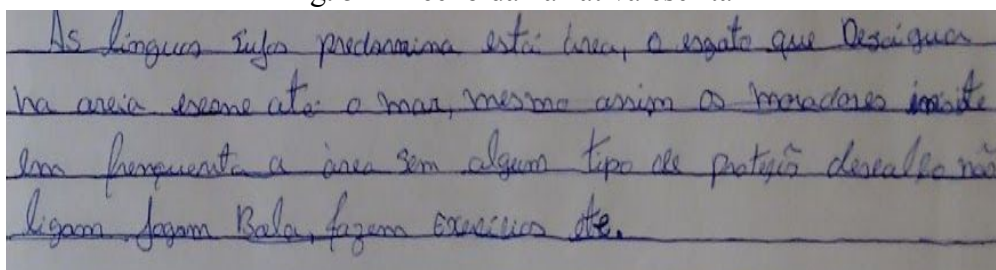 As línguas sujas predomina está área, o esgoto que Desaigua
na areia escorre até o mar, mesmo assim os moradores insiste
em frenquenta a área sem algum tipo de proteção descalço não
ligam jogam Bola, fazem Exercícios etc.